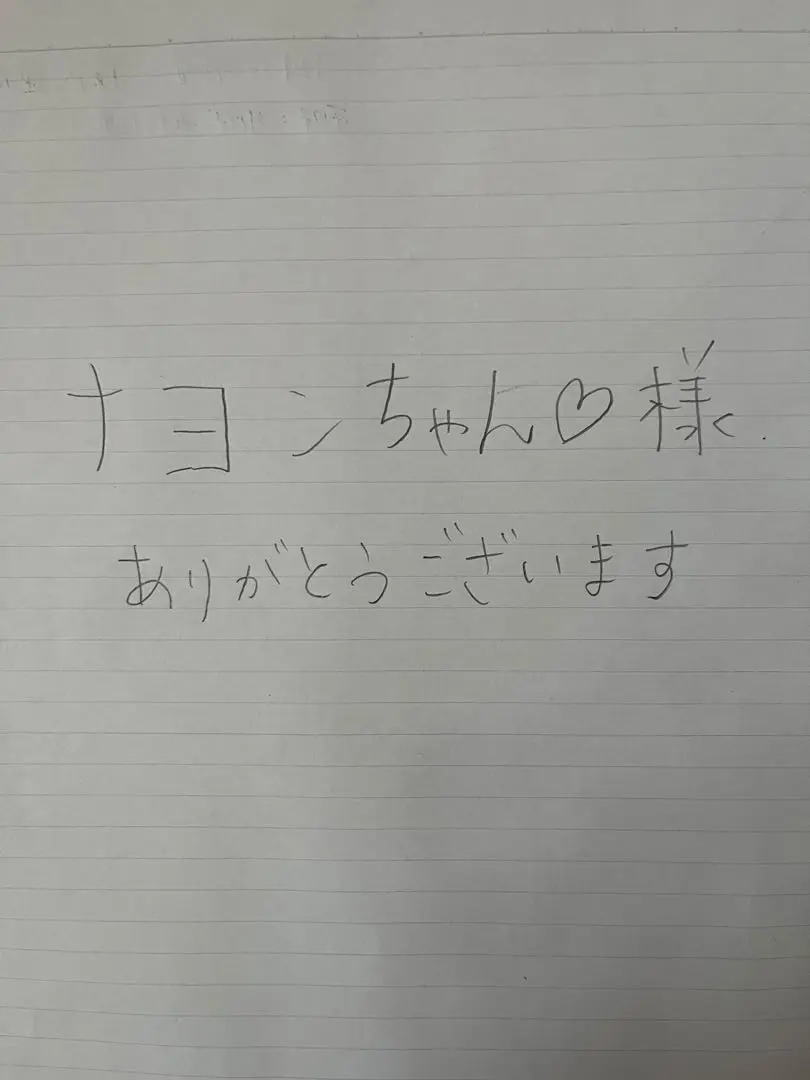 ナヨンちゃん♡様
ありがとうございます